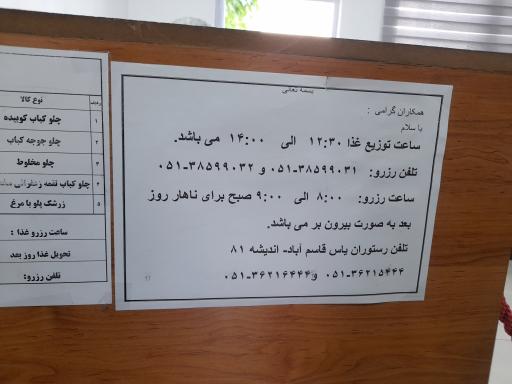 بسمه تعالی
همکاران گرامی :
با سلام
ساعت توزیع غذا ۱۲:۳۰ الی ۱۴:۰۰ می باشد.
تلفن رزرو: ۰۵۱-۳۸۵۹۹۰۳۱ و ۰۵۱-۳۸۵۹۹۰۳۲
ساعت رزرو: ۸:۰۰ الی ۹:۰۰ صبح برای ناهار روز
بعد به صورت بیرون بر می باشد.
تلفن رستوران یاس قاسم آباد- اندیشه ۸۱
۰۵۱-۳۶۲۱۵۴۴۴ و ۰۵۱-۳۶۲۱۶۴۴۴
ردیف نوع کالا
۱ چلو کباب کوبیده
۲ چلو جوجه کباب
۳ چلو مخلوط
۴ چلو کباب لقمه زعفرانی
۵ زرشک پلو با مرغ
ساعت رزرو غذا :
تحویل غذا روز بعد
تلفن رزرو: